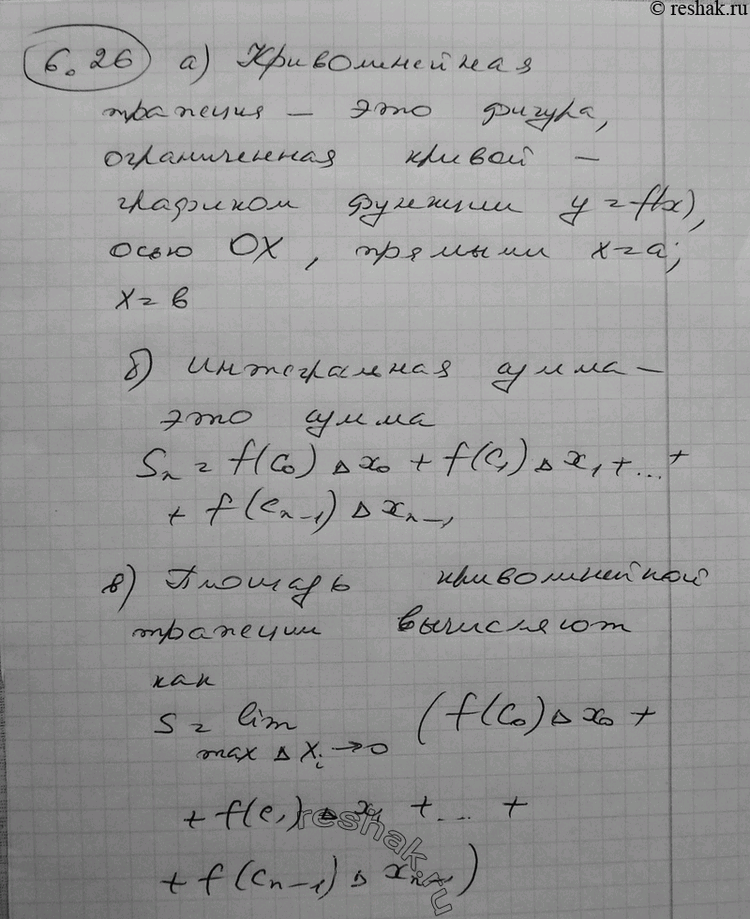 © reshak.ru
6.26 а) Криволинейная
трапеция – это фигура,
ограниченная кривой –
графиком функции y=f(x),
осью OX, прямыми x=a;
x=в
б) Интегральная сумма –
это сумма
Sn = f(c0)Δx0 + f(c1)Δx1+...+
+ f(cn-1)Δxn-1
в) Площадь криволинейной
трапеции вычисляют
как
S = lim (f(c0)Δx0 +
max Δxi→0
+ f(c1)Δx1 +...+
+ f(cn-1)Δxn-1)
reshak.ru